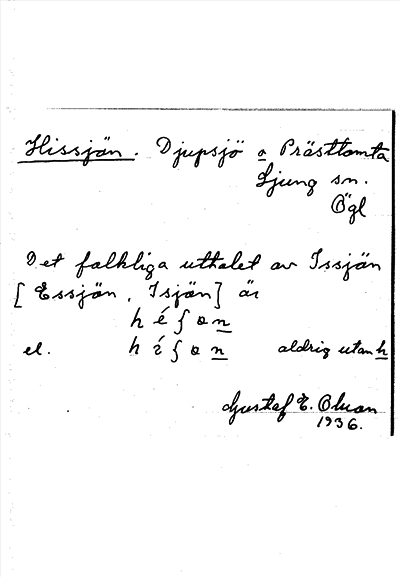 Hissjön. Djupsjö o Prästtomta
Ljung sn.
Ögl
Det folkliga uttalet av Issjön
[Essjön, Isjön] är
h é ʃ ɷ n
el. h í ʃ ɷ n aldrig utan h
Gustaf E. Olsson
1936.